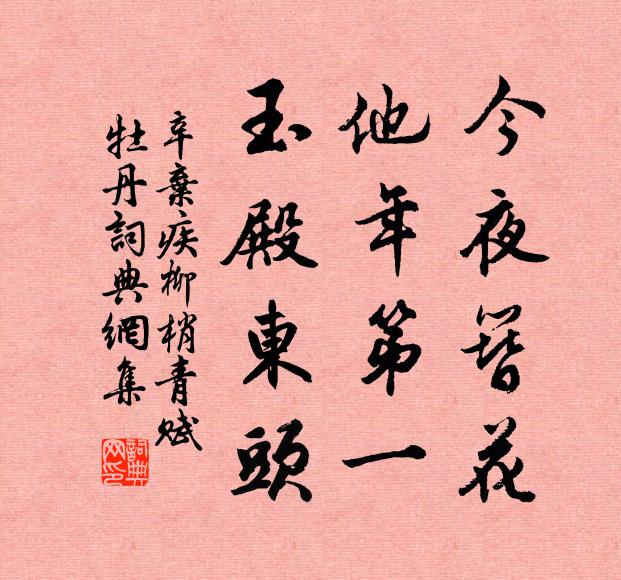 今夜簪花
他年第一
玉殿東頭
辛棄疾柳梢青賦
牡丹詞典網集
詞典網印